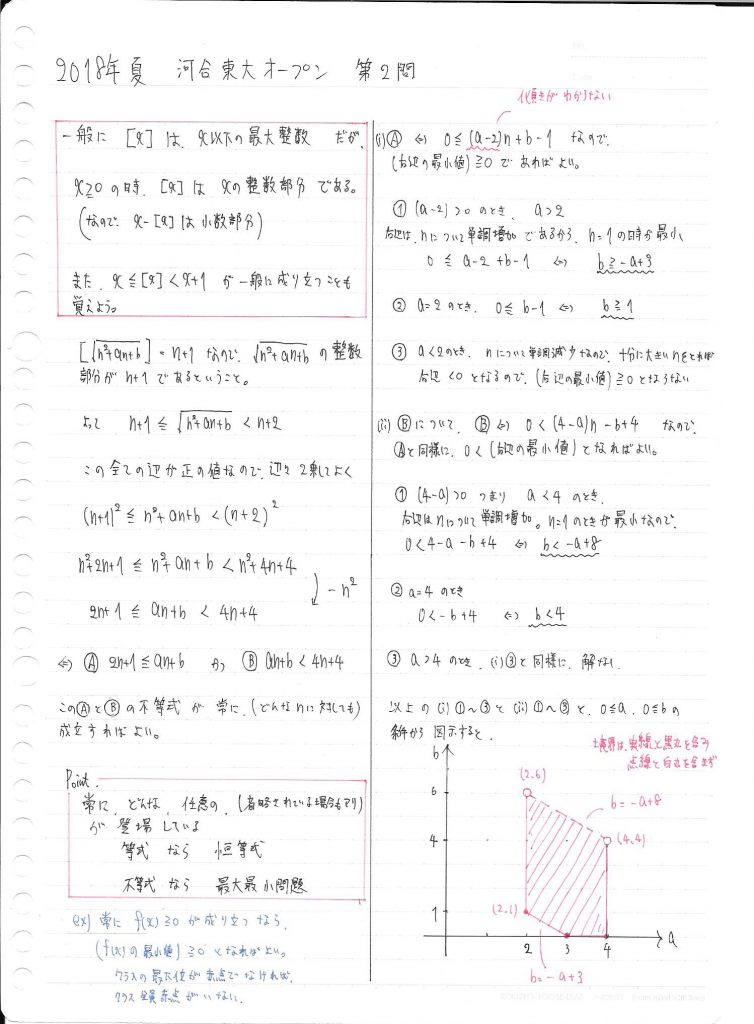 2018年夏 河合東大オープン 第2問
一般に [x] は、x以下の最大整数 だが、
x≧0 の時、[x] は xの整数部分 である。
(なので x-[x] は小数部分)
また、x≦[x]<x+1 が一般に成り立つことも
覚えよう。
[√(n²+an+b)] = n+1 なので、√(n²+an+b) の整数
部分が n+1 であるということ。
よって n+1 ≦ √(n²+an+b) < n+2
この全ての辺が正の値なので、辺々2乗してよく
(n+1)² ≦ n²+an+b < (n+2)²
n²+2n+1 ≦ n²+an+b < n²+4n+4
-n²
2n+1 ≦ an+b < 4n+4
⇔ Ⓐ 2n+1≦an+b かつ Ⓑ an+b<4n+4
このⒶとⒷの不等式が 常に、(どんなnに対しても)
成立すればよい。
Point.
常に、どんな、任意の、(省略されている場合もアリ)
が 登場している
等式 なら 恒等式
不等式 なら 最大最小問題
ex) 常に f(x)≧0 が成り立つなら、
(f(x)の最小値)≧0 となればよい。
クラスの最下位が赤点でなければ、
クラス全員赤点がいない。
傾きがわからない
(i) Ⓐ ⇔ 0≦(a-2)n+b-1 なので、
(右辺の最小値)≧0 であればよい。
① (a-2)>0 のとき、a>2
右辺は、nについて単調増加 であるから、n=1の時が最小
0 ≦ a-2+b-1 ⇔ b≧-a+3
② a=2 のとき、0≦b-1 ⇔ b≧1
③ a<2のとき、nについて単調減少なので、十分に大きいnをとれば
右辺<0となるので、(右辺の最小値)≧0 とならない
(ii) Ⓑについて、Ⓑ⇔ 0<(4-a)n-b+4 なので、
Ⓐと同様に、0<(右辺の最小値)となればよい。
① (4-a)>0 つまり a<4 のとき、
右辺はnについて単調増加。n=1のときが最小なので、
0<4-a-b+4 ⇔ b<-a+8
② a=4 のとき
0<-b+4 ⇔ b<4
③ a>4 のとき、(i)③と同様に、解なし
以上の(i)①~③と(ii)①~③と、0≦a、0≦bの
条件から 図示すると、
境界は、実線と黒丸を含み
点線と白丸を含まず
b
(2,6)
6
b=-a+8
4
(4,4)
(2,1)
1
2 3 4 a
b=-a+3